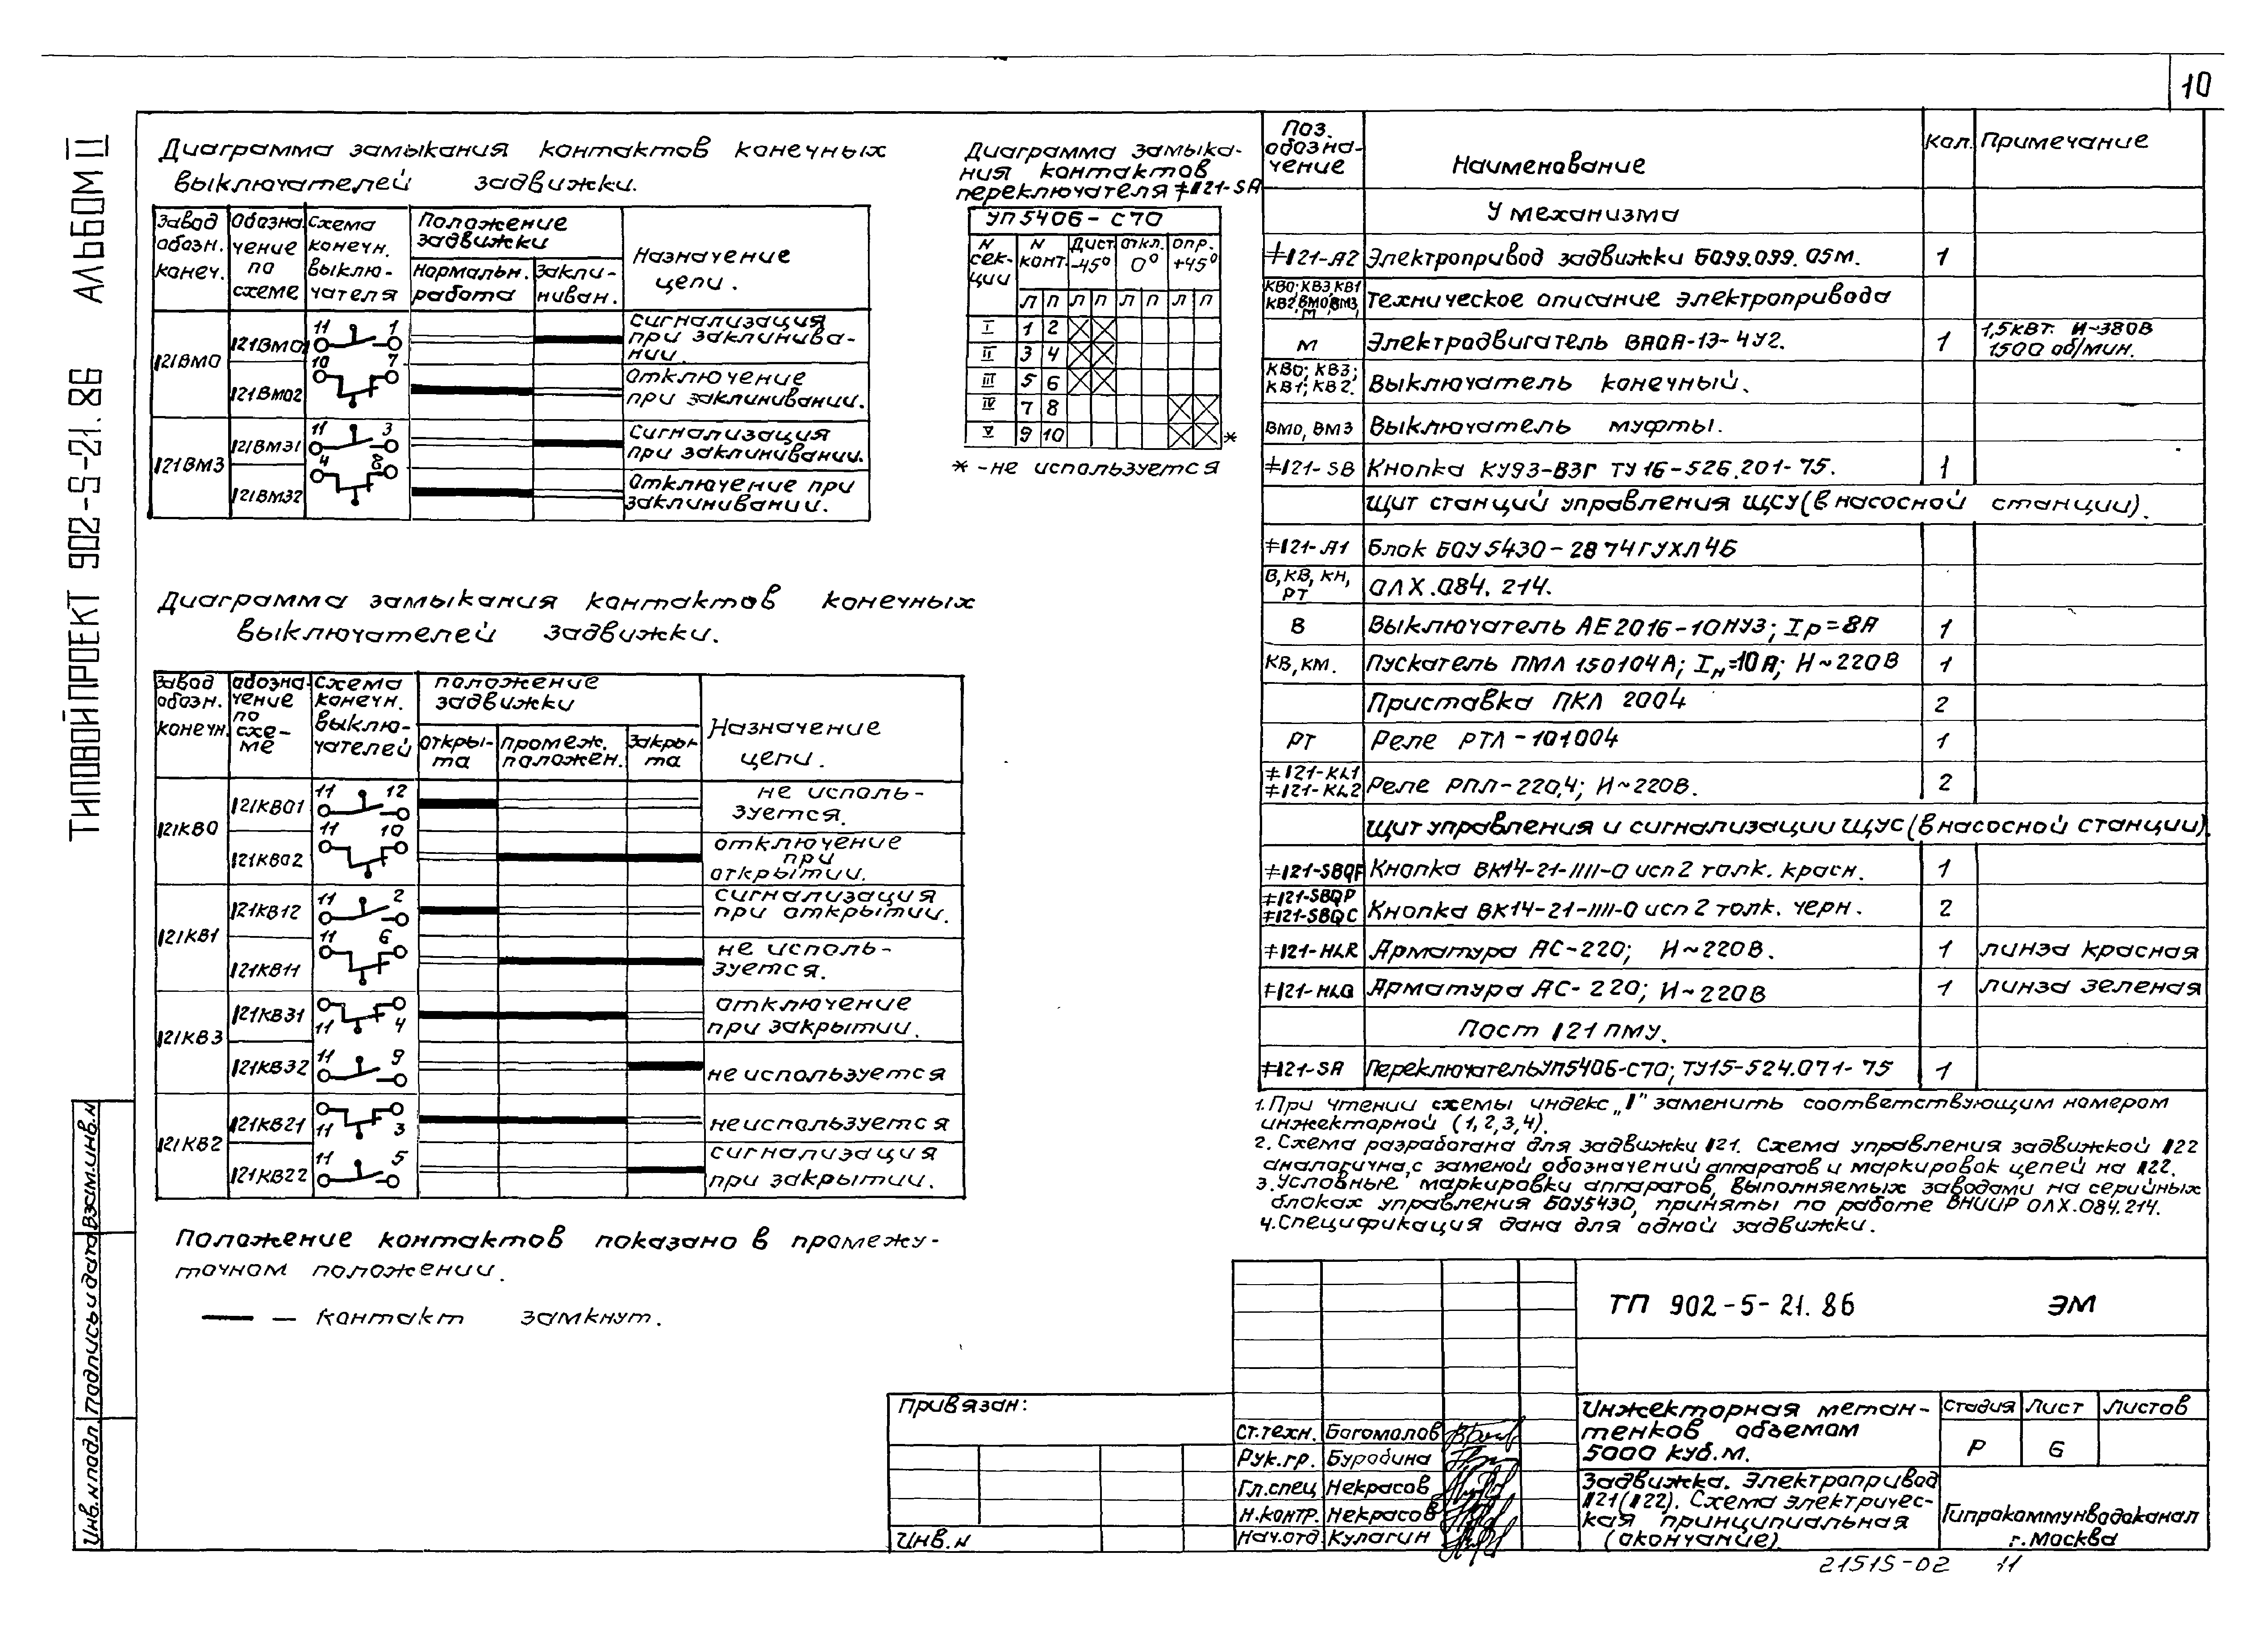 10
ТИПОВОЙ ПРОЕКТ 902-5-21.86 АЛЬБОМ II
Диаграмма замыкания контактов конечных
выключателей задвижки.
Завод обозн. конеч.
Обозначение по схеме
Схема конечн. выключателя
Положение задвижки
Нормальн. работа
Заклиниван.
Назначение цепи.
121ВМО
121ВМО1
11 1
Сигнализация
при заклинива-
нии.
10 7
121ВМО2
Отключение
при заклинивании.
121ВМЗ
121ВМ31
11 3
Сигнализация
при заклинивании.
4 8
121ВМ32
Отключение при
заклинивании.
Диаграмма замыкания контактов конечных
выключателей задвижки.
Завод обозн. конечн.
Обозначение по схеме
Схема конечн. выключателей
положение задвижки
откры-
та
промеж.
положен.
Закры-
та
Назначение
цепи.
121КВ0
121КВ01
11 12
не исполь-
зуется.
121КВ02
11 10
отключение
при
открытии.
121КВ1
121КВ12
11 2
сигнализация
при открытии.
121КВ11
11 6
не исполь-
зуется.
121КВ3
121КВ31
11 4
отключение
при закрытии.
121КВ32
11 9
не используется
121КВ2
121КВ21
11 3
не используется
121КВ22
11 5
сигнализация
при закрытии.
Положение контактов показано в промежу-
точном положении.
— контакт замкнут.
Диаграмма замыка-
ния контактов
переключателя ≠121-SA
УП5406-С70
N сек-
ции
N конт.
Дист. -45°
Откл. 0°
Опр. +45°
Л П Л П Л П Л П
I 1 2
II 3 4
III 5 6
IV 7 8
V 9 10 *
* -не используется
Поз. обозна-
чение
Наименование
Кол.
Примечание
У механизма
≠121-А2 Электропривод задвижки Б099.099.05м. 1
КВ0; КВ3, КВ1
КВ2, ВМ0, ВМ3,
М
Техническое описание электропривода
М Электродвигатель ВАОА-13-4У2. 1 1,5кВт. U~380В
1500 об/мин.
КВ0; КВ3;
КВ1; КВ2.
Выключатель конечный.
ВМО, ВМЗ Выключатель муфты.
≠121-SB Кнопка КУ93-ВЗГ ТУ16-526.201-75. 1
Щит станций управления ЩСУ(в насосной станции).
≠121-А1 Блок БОУ5430-2874ГУХЛ4Б
В, КВ, КН,
РТ
ОЛХ.084.214.
В Выключатель АЕ2016-10НУЗ; Iр=8А 1
КВ, КМ. Пускатель ПМЛ 150104А; Iн=10А; И~220В 1
Приставка ПКЛ 2004 2
РТ Реле РТЛ-101004 1
≠121-KL1
≠121-KL2
Реле РПЛ-220,4; И~220В. 2
Щит управления и сигнализации ЩУС(в насосной станции).
≠121-SBQF Кнопка ВК14-21-1111-0 исп2 толк. красн. 1
≠121-SBQP
≠121-SBQC
Кнопка ВК14-21-1111-0 исп2 толк. черн. 2
≠121-HLR Арматура АС-220; И~220В. 1 линза красная
≠121-HLG Арматура АС-220; И~220В 1 линза зеленая
Пост 121 пму.
≠121-SA Переключатель УП5406-С70; ТУ15-524.071-75 1
1. При чтении схемы индекс „1" заменить соответствующим номером
инжекторной (1,2,3,4).
2. Схема разработана для задвижки 121. Схема управления задвижкой 122
аналогична, с заменой обозначений аппаратов и маркировок цепей на 122.
3. Условные маркировки аппаратов, выполняемых заводами на серийных
блоках управления БОУ5430, приняты по работе ВНИИР ОЛХ.084.214.
4. Спецификация дана для одной задвижки.
ТП 902-5-21.86 ЭМ
Привязан:
Инв. н
Ст. техн. Богомолов
Рук. гр. Буробина
Гл. спец Некрасов
Н. контр. Некрасов
Нач. отд Кулагин
Инжекторная метан-
тенков объемом
5000 куб.м.
Стадия Лист Листов
Р 6
Задвижка. Электропривод
121(122). Схема электричес-
кая принципиальная
(окончание).
Гипрокоммунводоканал
г. Москва
21515-02 11
Инв. н подл. Подпись и дата Взам. инв. н